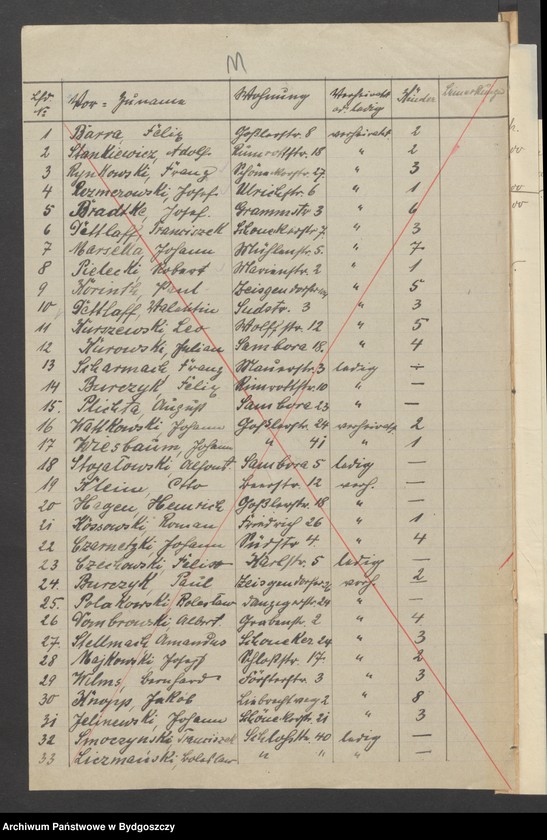 M
Lfd. № Vor = Zuname Wohnung Verheiratet od. ledig Kinder Bemerkungen
1 Barra, Felix Goßlerstr. 8 verheiratet 2
2 Stankiewicz, Adolf Rümrottstr. 18 " 2
3 Rynkowski, Franz Schöneckerstr. 27 " 3
4 Rezmerowski, Josef Ulrichstr. 6 " 1
5 Bradtke, Josef. Grammstr 3 " 6
6 Tettlaff, Franciszek Schöneckerstr. 7 " 3
7 Marsella, Johann Mühlenstr. 5. " 7
8 Pielecki Robert Marienstr. 2 " 1
9 Korinth, Paul Zeisgendorferstr. " 5
10 Tettlaff, Valentin Südstr. 3 " 3
11 Kurszewski Leo Wolffstr. 12 " 5
12 Kurowski, Julian Sambora 18. " 4
13 Scharmach Franz Mauerstr. 3 ledig —
14 Burczyk Felix Rümrottstr. 10 " —
15. Plichta, August Sambora 23 " —
16 Wattkowski Johann Goßlerstr. 24 verheirat. 2
17 Wiesbaum, Johann " 41 " 1
18 Stogałowski, Alfons Sambora 5 ledig —
19 Klein, Otto 12 verh. —
20 Hagen, Heinrich Goßlerstr. 18 " —
21 Kossowski, Roman Friedrich 26 " 1
22 Czarnetzki Johann Südstr 4. " 4
23 Czechowski, Felix Karlstr. 5 ledig —
24. Burczyk Paul Zeisgendorferstr. verh. 2
25. Polakowski Bolesław Danzigerstr. 24 " —
26 Dombrowski Albert. Grabenstr. 2 " 4
27. Stellmach Amandus Schönecker 24 " 3
28 Majkowski, Josef Schloßstr. 17. " 2
29 Wilms, Bernhard Försterstr. 3 " 3
30 Knopp, Jakob Liebrechtweg 2 " 8
31 Jelinewski, Johann Schöneckerstr. 21 " 3
32 Smoczyński Franciszek Schloßstr. 40 ledig —
33 Liczmański Bolesław " " " —
Archiwum Państwowe w Bydgoszczy